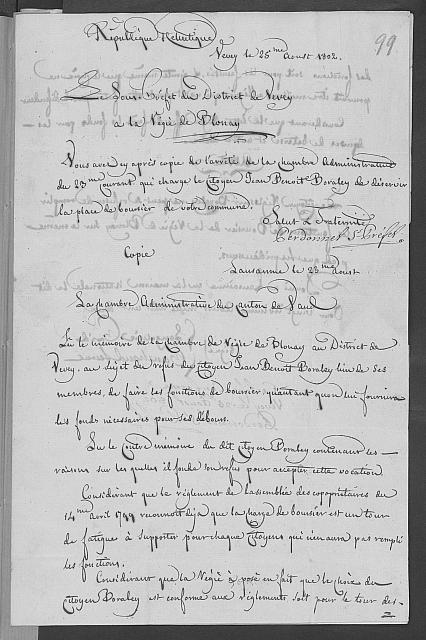 République Helvétique
99
Vevey le 25me Aoust 1802.
Le Sous Prefet du District de Vevey
a la Régie de Blonay
Vous avez cy après copie de l'arrêté de la Chambre Administrative
du 23me courant qui charge le citoyen Jean Benoit Boraley de déservir
la place de boursier de votre commune.
Salut & fraternité
Perdonnet Ss Préfet.
Copie
Lausanne le 23me Aoust
La Chambre Administrative du canton de Vaud
Lu le mémoire de la chambre de Régie de Blonay au District de
Vevey, au sujet du refus du citoyen Jean Benoit Boraley l'un de ses
membres, de faire les fonctions de boursier quautant quon lui fournira
les fonds nécessaires pour ses débours.
Lu le Contre mémoire du dit citoyen Boraley contenant ses
raisons sur les quelles il fonde son refus pour accepter cette vocation
Considérant que le réglement de l'assemblée des copropriétaires du
14me avril 1799 reconnoit déja que la charge de boursier est un tour
de fatigue à supporter pour chaque citoyens qui n'en aura pas rempli
les fonctions.
Considérant que la Régie a posé en fait que le choix du
citoyen Boraley est conforme aux réglements soit pour le tour des